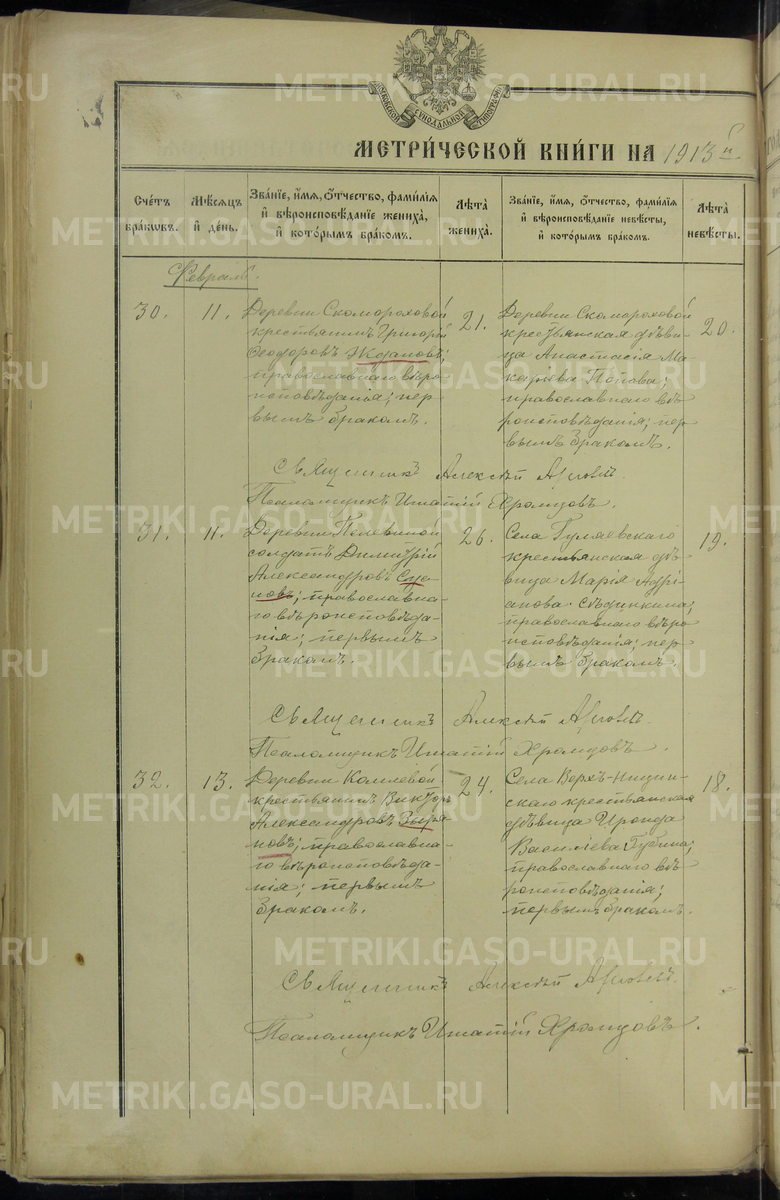 СѴНОДАЛЬНОЙ
МЕТРИ́ЧЕСКОЙ КНИ́ГИ НА 1913 г.
Сче́тъ бра́кωвъ.
Мѣ́сяцъ и҆ де́нь.
Зва́нїе, и҆́мя, ѻ҆́тчество, фами́лїя и҆ вѣроисповѣ́данїе жениха̀, и҆ кото́рымъ бра́комъ.
Лѣта̀ жениха̀.
Зва́нїе, и҆́мя, ѻ҆́тчество, фами́лїя и҆ вѣроисповѣ́данїе невѣ́сты, и҆ кото́рымъ бра́комъ.
Лѣта̀ невѣ́сты.
Февраль.
30.
11.
Деревни Скомороховой
крестьянинъ Григорій
Ѳеодоровъ Ждановъ;
православнаго вѣро
исповѣданія; пер
вымъ бракомъ.
21.
Деревни Скомороховой
крестьянская дѣви
ца Анастасія Ма
карьева Попова;
православнаго вѣ
роисповѣданія; пер
вымъ бракомъ.
20.
Священникъ Алексѣй
Псаломщикъ Игнатій Храмцовъ.
31.
11.
Деревни Полевиной
солдатъ Димитрій
Александровъ
православна
го вѣроисповѣда
нія; первымъ
бракомъ.
26.
Села Гуляевскаго
крестьянская дѣ
вица Марія Адрі
анова
православнаго вѣро
исповѣданія; пер
вымъ бракомъ.
19.
Священникъ Алексѣй
Псаломщикъ Игнатій Храмцовъ.
32.
13.
Деревни
крестьянинъ Викторъ
Александровъ Зыря
новъ; православна
го вѣроисповѣда
нія; первымъ
бракомъ.
24.
Села Верх-Ницин
скаго крестьянская
дѣвица Ироида
Василіева Губина;
православнаго вѣ
роисповѣданія;
первымъ бракомъ.
18.
Священникъ Алексѣй
Псаломщикъ Игнатій Храмцовъ.
METRIKI.GASO-URAL.RU